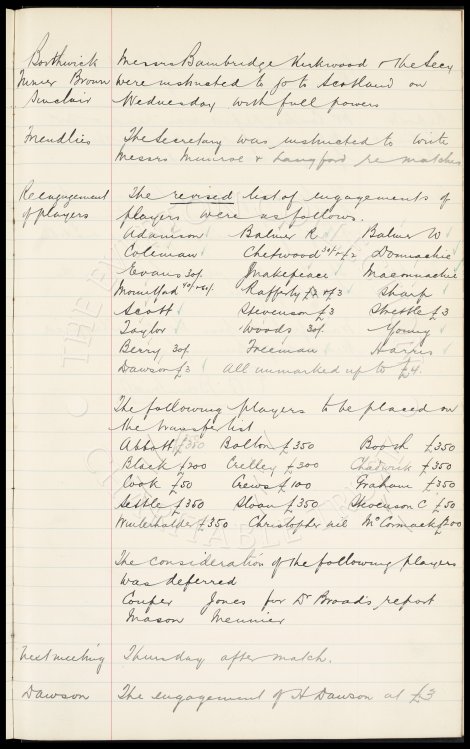 Borthwick Messrs Bainbridge Kirkwood & the Secy
Turner Brown were instructed to go to Scotland on
Sinclair Wednesday with full powers
Friendlies The Secretary was instructed to write
Messrs Munroe & Langford re matches
Re engagement The revised list of engagements of
of players players were as follows.
Adamson Balmer R Balmer W
Coleman Chetwood Donnachie
Evans 30/- Makepeace Maconnachie
Mountford Rafferty £3 Sharp
Scott Stevenson £3 Strettle £3
Taylor Woods 30/- Young
Berry 30/- Freeman Harris
Dawson £3 All unmarked up to £4.
The following players to be placed on
the transfer list
Abbott £350 Bolton £350 Booth £350
Black £200 Crelley £300 Chadwick £350
Cook £50 Crews £100 Graham £350
Settle £350 Sloan £350 Stevenson C £50
Winterhalder £350 Christopher nil McCormack £200
The consideration of the following players
was deferred
Couper Jones for Dr Broads report
Mason Meunier
Next meeting Thursday after match.
Dawson The engagement of H Dawson at £3